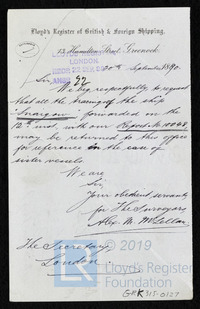 Lloyd's Register of British & Foreign Shipping,
13 Hamilton Street, Greenock
LONDON.
20th September 1890.
Sir,
We beg respectfully to request
that all the tracings of the ship
forwarded on the
12th inst. with our Report No
may be returned to this office
for reference in the case of
sister vessels
We are
Sir,
Your obedient servants
for The Surveyors
Alex. M. McLellan
The Secretary
London.
© 2019
Lloyd's Register
Foundation
GHK 315-0127